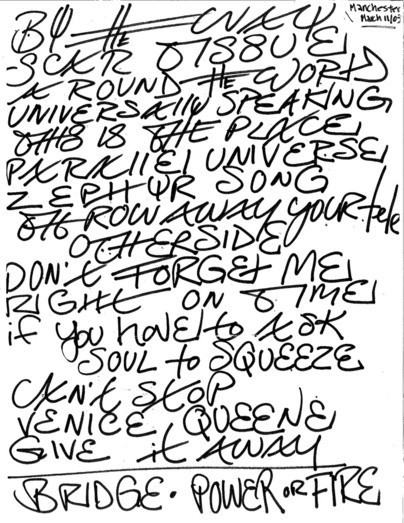 Manchester
March 11/03
BY the WAY
SCAR TISSUE
AROUND the WORLD
UNIVERSALLY SPEAKING
THIS IS THE PLACE
PARALLEL UNIVERSE
ZEPHYR SONG
THROW AWAY YOUR tele
OTHERSIDE
DON't FORGEt ME
RIGHt ON TIME
if you have to ASK
SOUL to SQUEEZE
CAN't StOP
VENICE QUEENE
GIVE it AWAY
BRIDGE • POWER OR FIRE